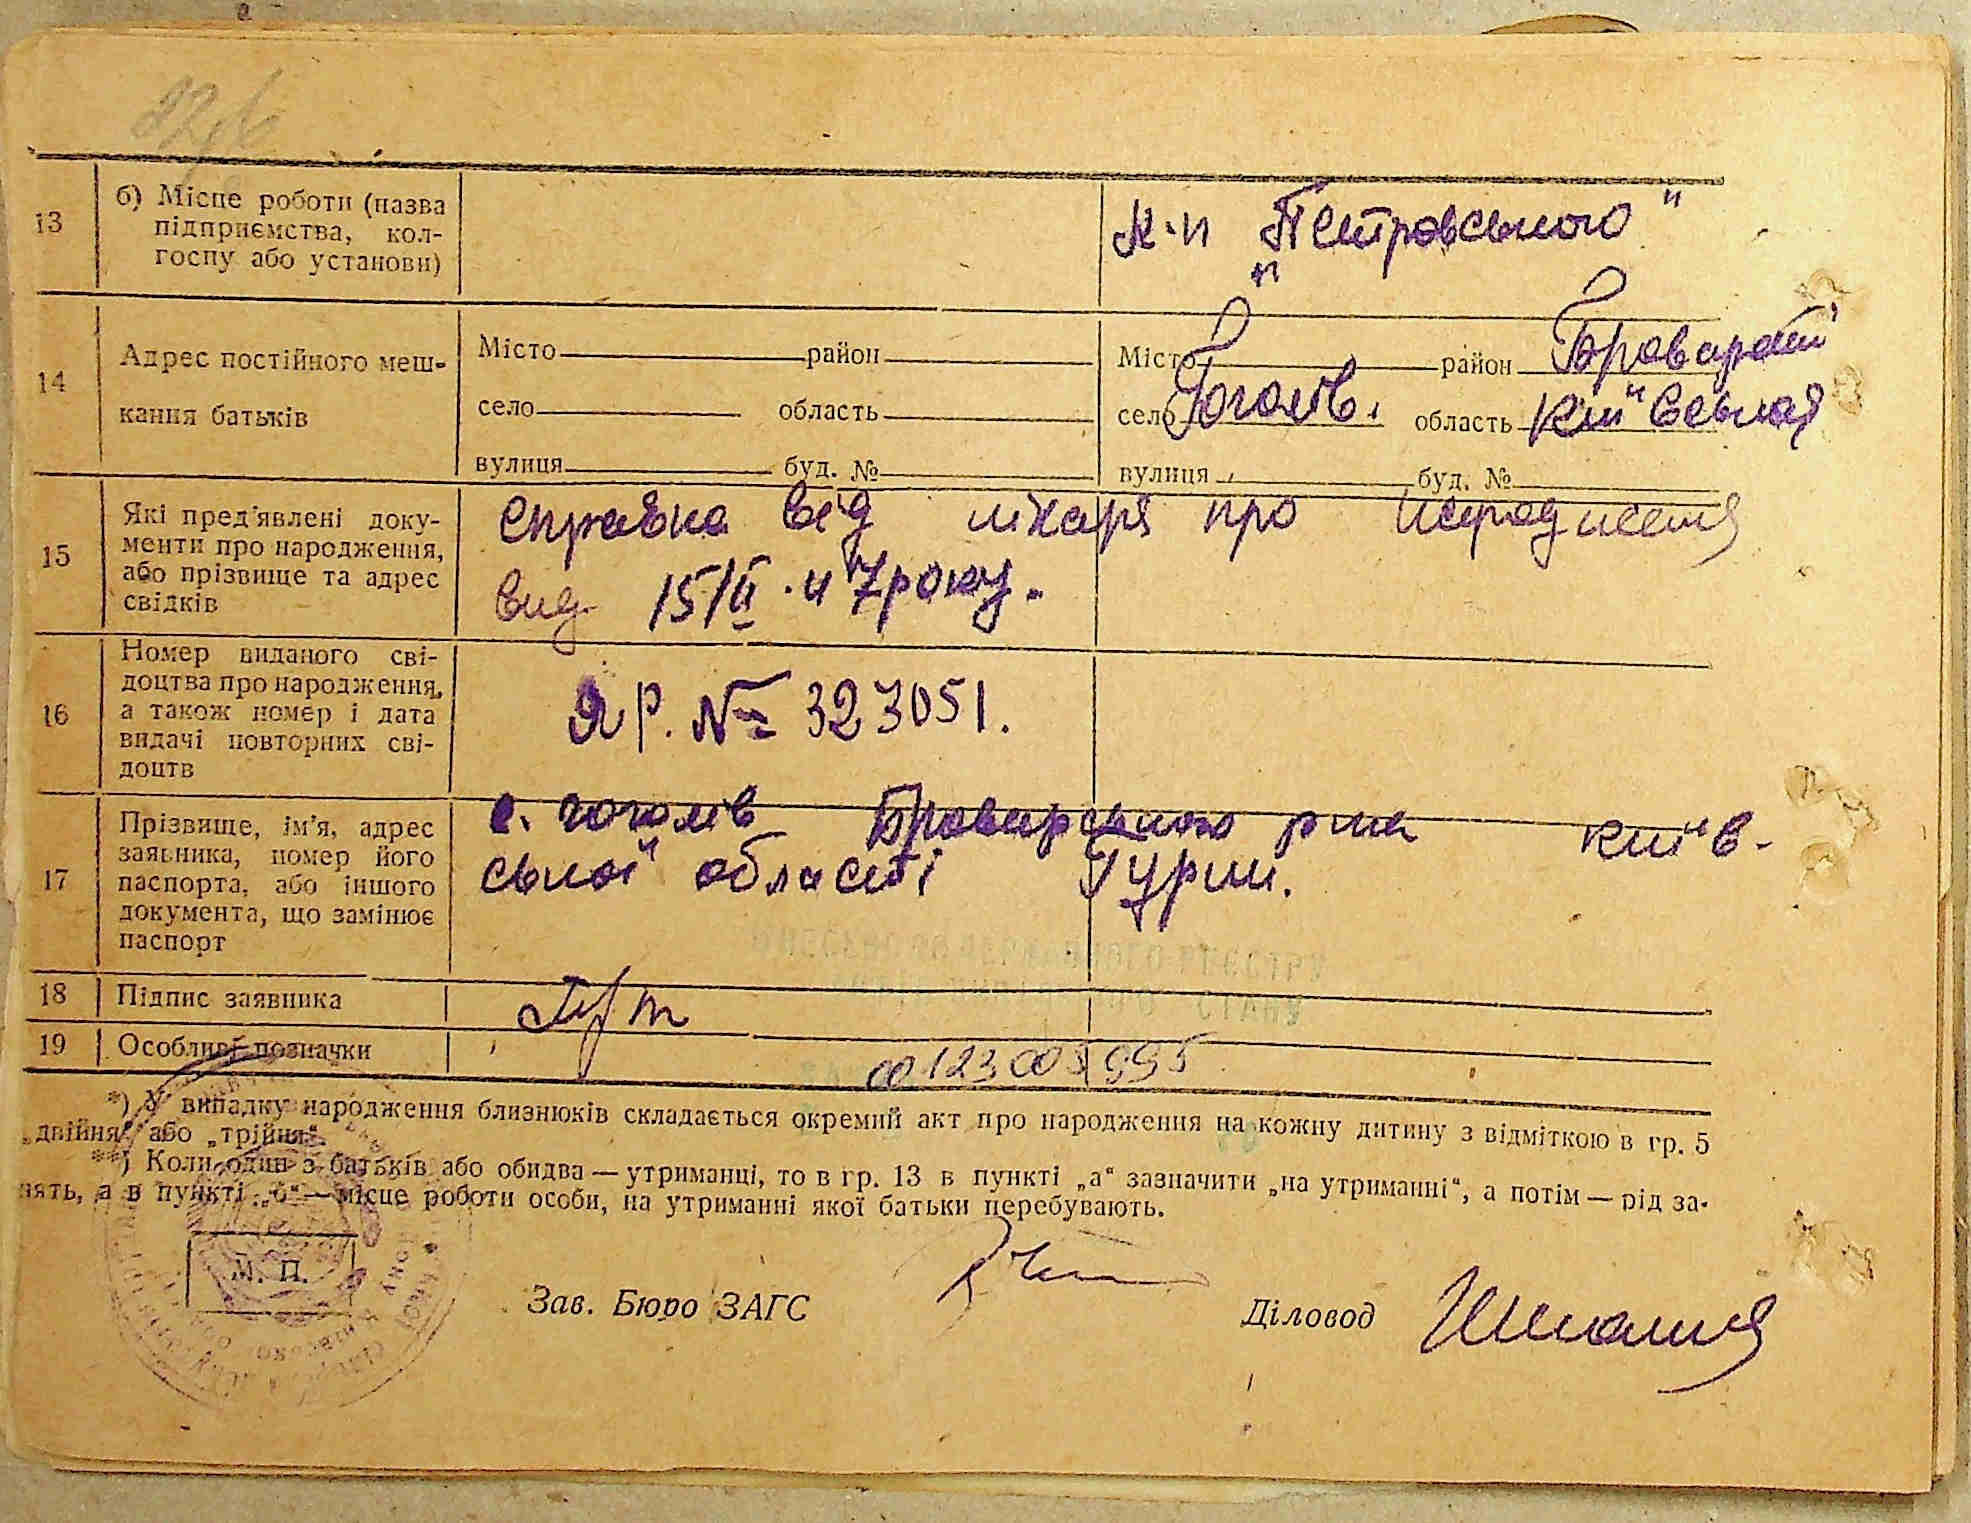 13
б) Місце роботи (назва
підприємства, кол-
госпу або установи)
к-п "Петровського"
14
Адрес постійного меш-
кання батьків
Місто район
село область
вулиця буд. №
Місто район Броварський
село Гоголів. область Київська
вулиця буд. №
15
Які пред'явлені доку-
менти про народження,
або прізвище та адрес
свідків
справка від лікаря про народження
вид. 15/II. 47 року.
16
Номер виданого сві-
доцтва про народження,
а також номер і дата
видачі повторних сві-
доцтв
ЯР. № 323051.
17
Прізвище, ім'я, адрес
заявника, номер його
паспорта, або іншого
документа, що замінює
паспорт
с. Гоголів Броварського р-на Київ-
ської області Гурин.
18
Підпис заявника
19
Особливі позначки
00123005995
*) У випадку народження близнюків складається окремий акт про народження на кожну дитину з відміткою в гр. 5
„двійня" або „трійня".
**) Коли один з батьків або обидва — утриманці, то в гр. 13 в пункті „а" зазначити „на утриманні", а потім — рід за-
нять, а в пункті „б" — місце роботи особи, на утриманні якої батьки перебувають.
М. П.
Зав. Бюро ЗАГС
Діловод